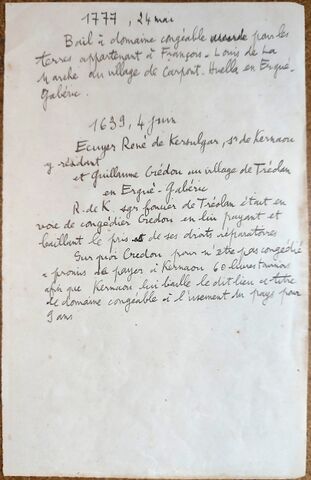 1777, 24 mai
Bail à domaine congéable pour les
terres appartenant à François-Louis de La
Marche du village de Carpont-Huella en Ergué-
Gabéric.
1639, 4 juin
Ecuyer René de Kersulgar, sr de Kernaou
y résidant
et Guillaume Credou du village de Tréolan
en Ergué-Gabéric
R. de K. sgr foncier de Tréolan était en
voie de congédier Credou en lui payant et
baillant le pris de ses droits réparatoires
Sur quoi Credou pour n'être pas congédié
a promis payer à Kernaou 60 livres tournois
afin que Kernaou lui baille le dit lieu à titre
de domaine congéable à l'usement du pays pour
9 ans